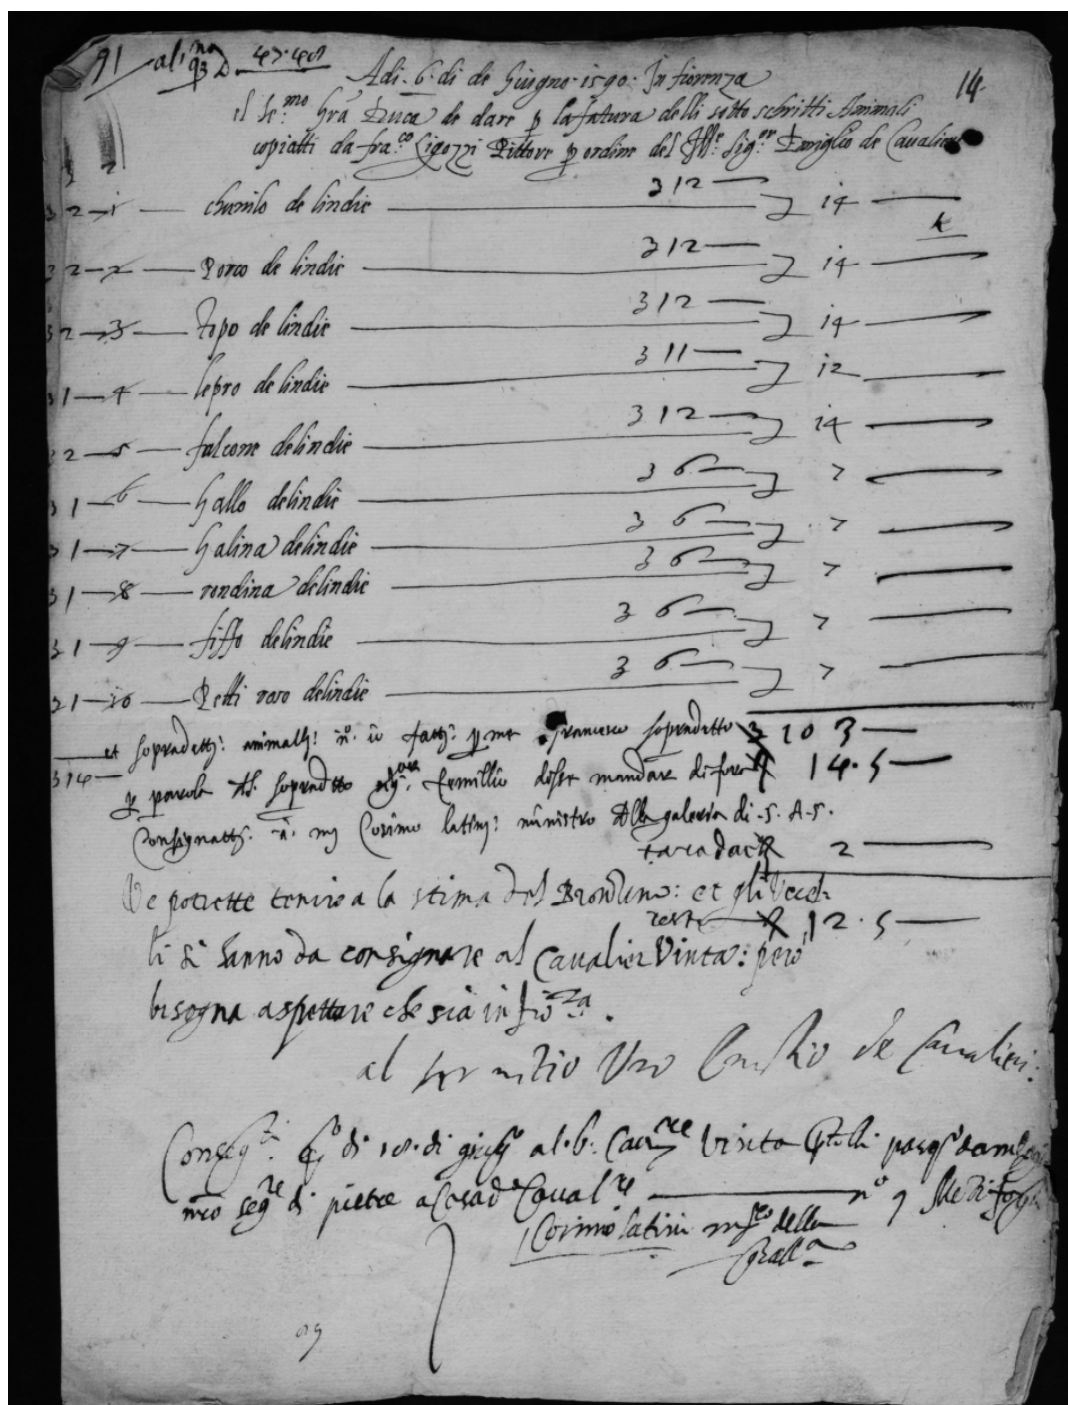 91 14
Adi. 6. di de Giugno 1590. In fiorenza
il Se.mo Gra Duca de dare p la fatura delli sotto schritti Animali
copiatti da fra.co Ligozzi Pittore p ordine del Ill.e Sig.or Emiglio de Cavalieri
3 2 — 1 — chunilo de lindie — 3 12 — 14 —
3 2 — 2 — Porco de lindie — 3 12 — 14 —
3 2 — 3 — topo de lindie — 3 12 — 14 —
3 1 — 4 — lepro de lindie — 3 11 — 12 —
3 2 — 5 — falcone delindie — 3 12 — 14 —
3 1 — 6 — Gallo delindie — 3 6 — 7 —
3 1 — 7 — Galina delindie — 3 6 — 7 —
3 1 — 8 — rondina delindie — 3 6 — 7 —
3 1 — 9 — fiffo delindie — 3 6 — 7 —
3 1 — 10 — Petti roso delindie — 3 6 — 7 —
et sopradetti animalli n.o 10 fatti p me Francesco sopradetto 103 —
3 14 — p parola del sopradetto sig.or Emillio disse mandare di fora 14.5 —
Consegnatti a mj Cosimo latinj ministro della galeria di S. A. S.
tara dacti 2 —
Se potrette tenire a la stima del Bronzino: et gli Ucel
resta 12.5 —
li si hanno da consignare al Cavalier Vinta: però
bisogna aspettare che sia in fio.za.
al servitio Vro Emilio de Cavalieri:
di 18. di giug.o al Vinta
di pietre Caval.re — n.o 9
Cosimo latini della
Gall.a